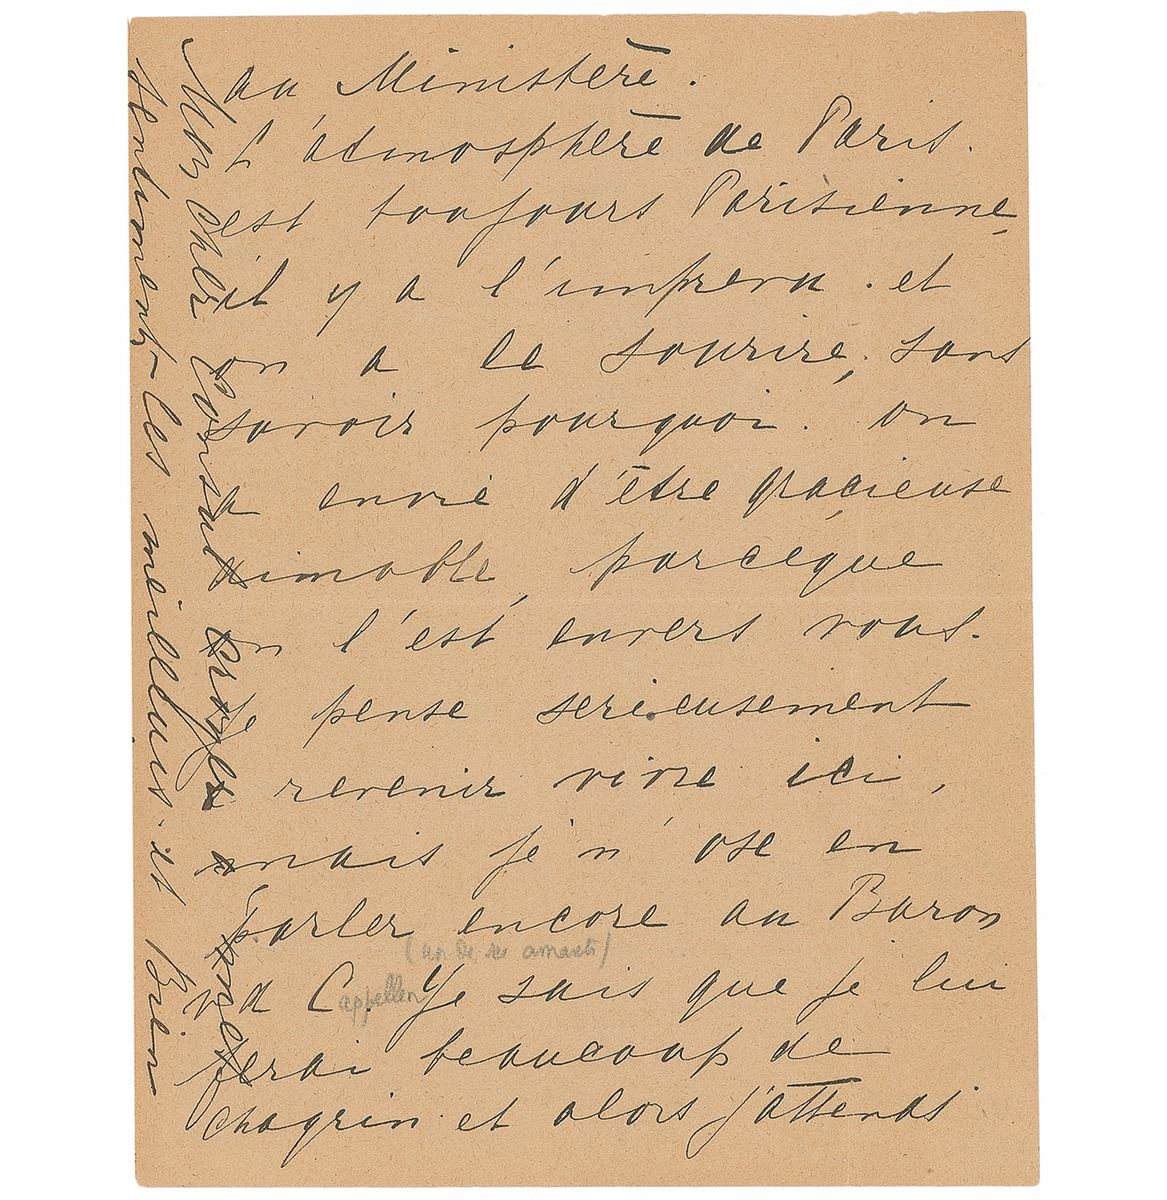 au Ministère.
L'atmosphère de Paris.
est toujours Parisienne,
il y a l'imprevu. et
on a le sourire, sans
savoir pourquoi. on
a envie d'être gracieuse
aimable, parceque
on l'est envers vous.
Je pense serieusement
revenir vivre ici,
mais je n'ose en
parler encore au Baron
(un de ses amants)
v d C. Je sais que je lui
appellen
ferai beaucoup de
chagrin. et alors j'attends
Mon cher Consul croyez
sentiments les meilleurs. et Bien